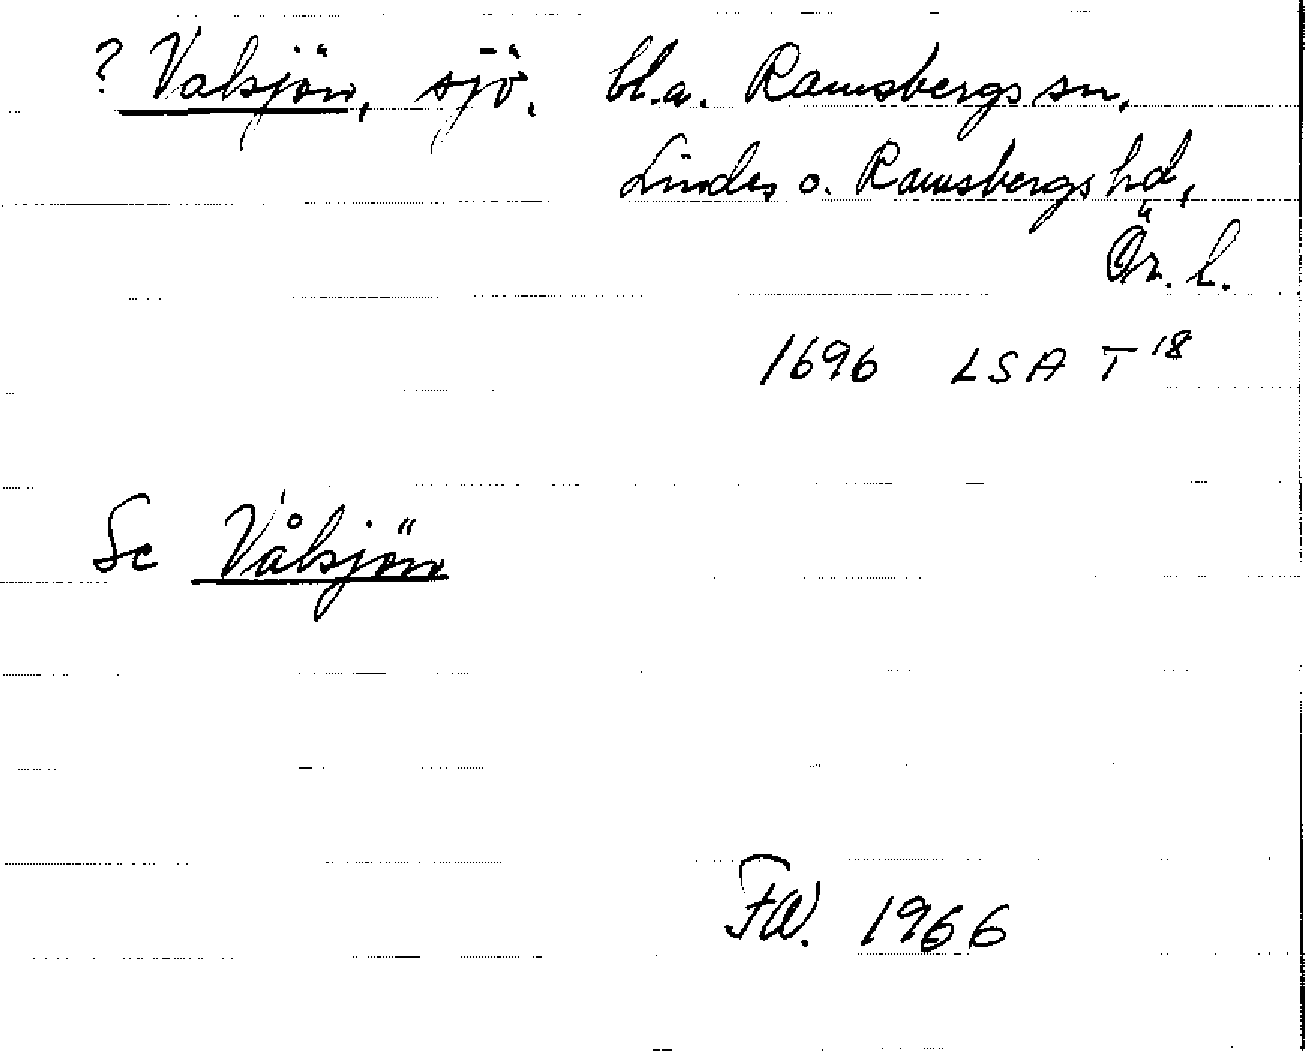 ? Valsjön, sjö. bl.a. Ramsbergs sn,
Lindes o. Ramsbergs hd,
Ör. l.
1696 LSA T 18
Se Vålsjön
FW. 1966